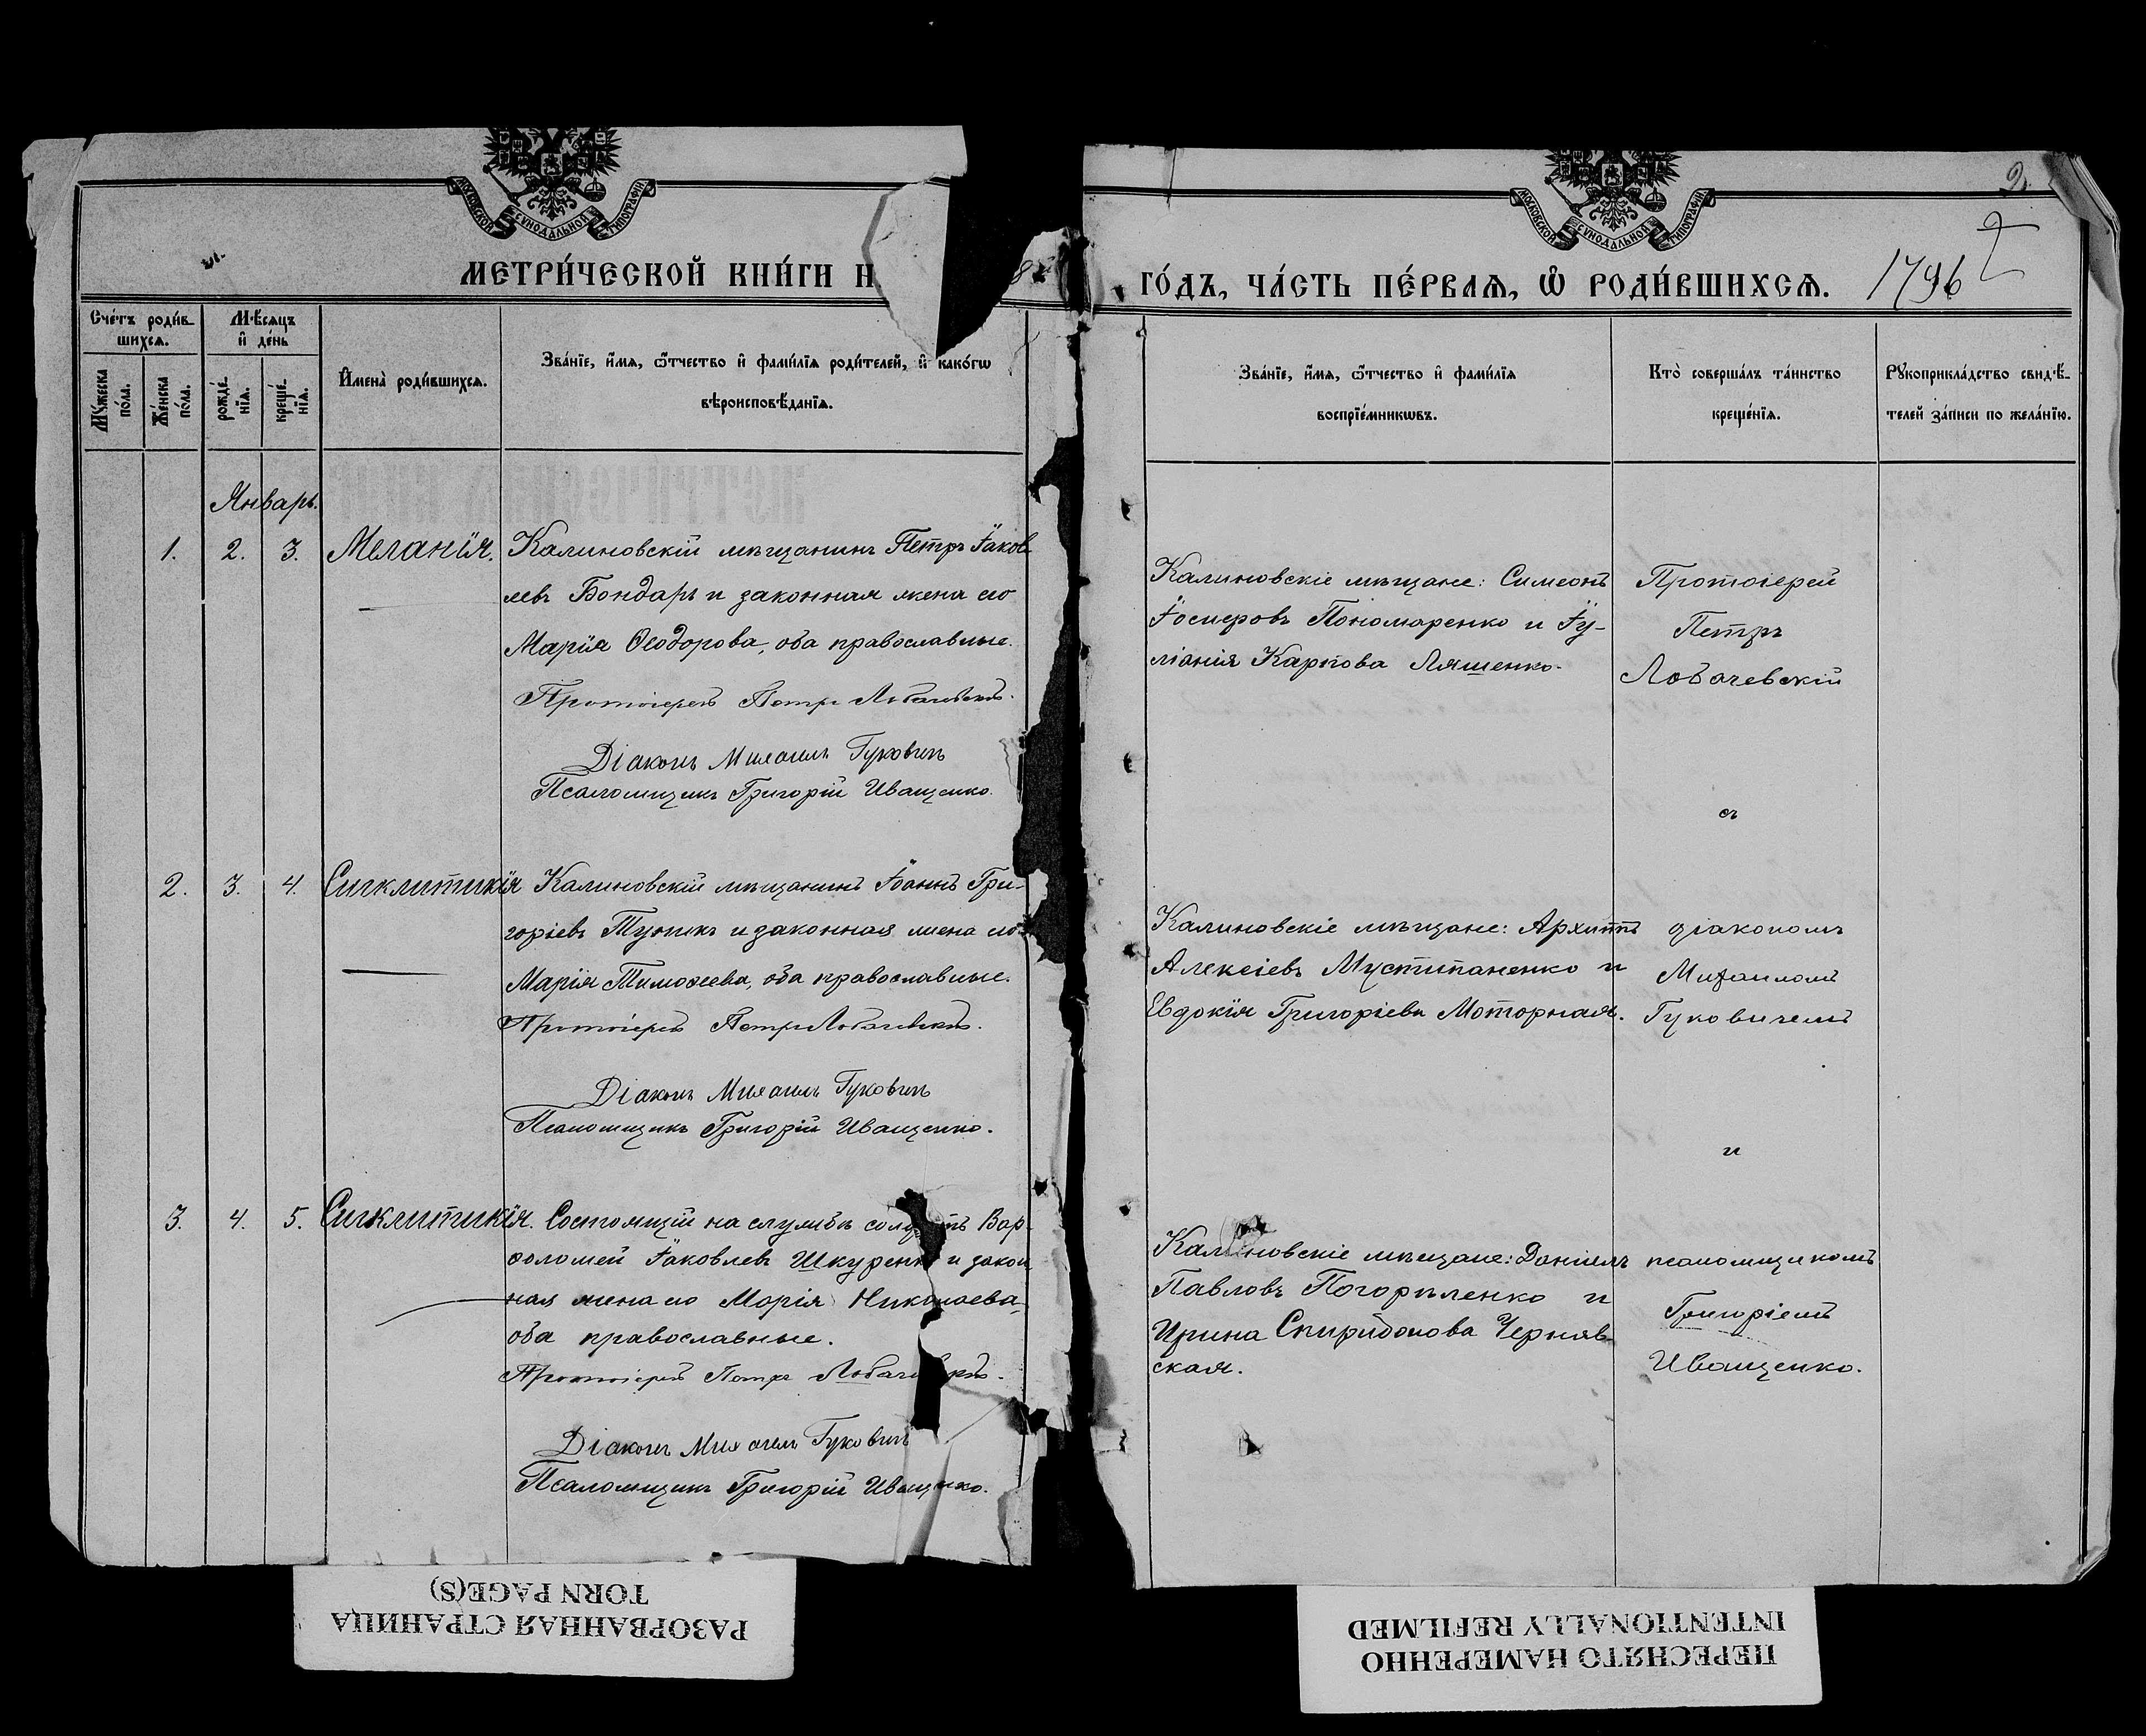 МОСКОВСКОЙ СѴНОДАЛЬНОЙ ТИПОГРАФІИ
МЕТРИ́ЧЕСКОЙ КНИ́ГИ Н
Сче́тъ роди́в-
шихсѧ.
Мѣ́сѧцъ
и҆ де́нь
Мꙋ́жеска
по́ла.
Же́нска
по́ла.
рожде́-
нїѧ.
креще́-
нїѧ.
И҆мена̀ роди́вшихсѧ.
Зва́нїе, и҆́мѧ, ѻ҆́тчество и҆ фами́лїѧ роди́телей, и҆ како́гѡ
вѣроисповѣ́данїѧ.
Январь.
1. 2. 3. Меланія. Калиновскій мѣщанинъ Петръ Іаков
левъ Бондарь и законная жена его
Марія Ѳеодорова, оба православные.
Протоіерей Петръ Лобачевскій.
Діаконъ Михаилъ Гуковичъ
Псаломщикъ Григорій Иващенко.
2. 3. 4. Сигклитикія Калиновскій мѣщанинъ Іоаннъ Гри-
горіевъ и законная жена его
Марія Тимоѳеева, оба православные.
Протоіерей Петръ Лобачевскій.
Діаконъ Михаилъ Гуковичъ
Псаломщикъ Григорій Иващенко.
3. 4. 5. Сигклитикія. Состоящій на службѣ солдатъ Вар-
ѳоломей Іаковлевъ Шкуренко и закон
ная жена его Марія Николаева,
оба православные.
Протоіерей Петръ Лобачевскій.
Діаконъ Михаилъ Гуковичъ
Псаломщикъ Григорій Иващенко.
РАЗОРВАННАЯ СТРАНИЦА
TORN PAGE(S)
2.
МОСКОВСКОЙ СѴНОДАЛЬНОЙ ТИПОГРАФІИ
ГО́ДЪ, ЧА́СТЬ ПЕ́РВАѦ, Ѡ҆ РОДИ́ВШИХСѦ. 1796
2
Зва́нїе, и҆́мѧ, ѻ҆́тчество и҆ фами́лїѧ
воспрїе́мникѡвъ.
Кто̀ соверша́лъ та́инство
креще́нїѧ.
Рꙋкоприкла́дство свидѣ́-
телей за́писи по жела́нїю.
Калиновскіе мѣщане: Симеонъ
Іосифовъ Пономаренко и Іу-
ліанія Карпова Ляшенко.
Протоіерей
Петръ
Лобачевскій
съ
Калиновскіе мѣщане: Архиппъ
Алексіевъ и
Евдокія Григоріева Моторная.
діакономъ
Михаиломъ
Гуковичемъ
и
Калиновскіе мѣщане: Даніилъ
Павловъ Погорѣленко и
Ирина Спиридонова Черняв-
ская.
псаломщикомъ
Григоріемъ
Иващенко.
ПЕРЕСНЯТО НАМЕРЕННО
INTENTIONALLY REFILMED